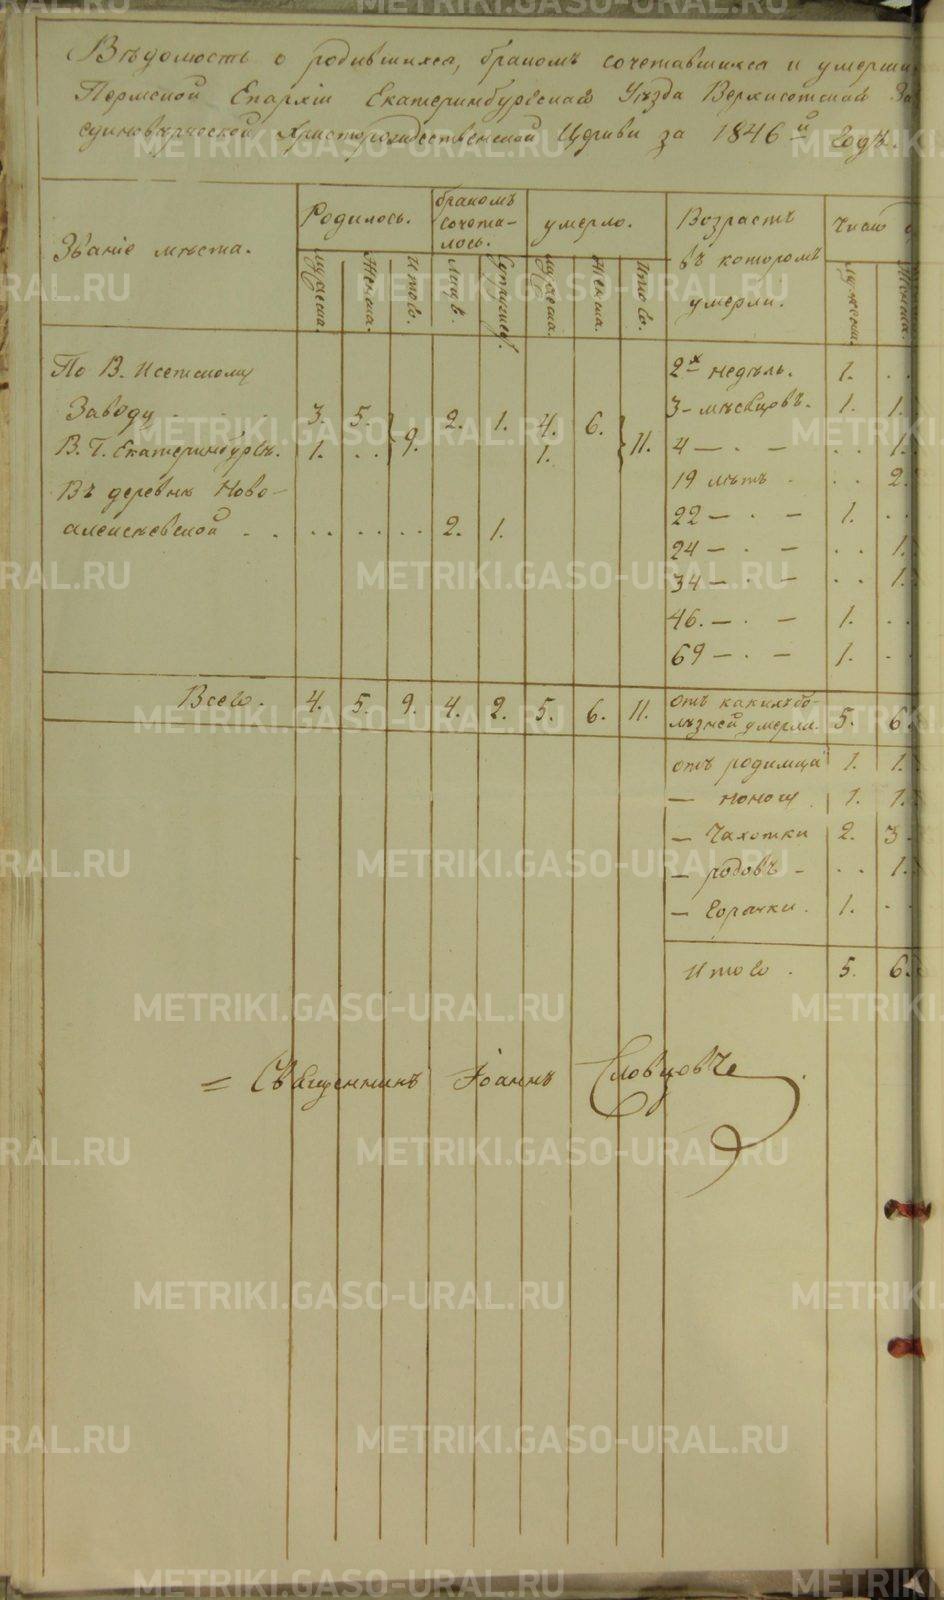 Вѣдомость о родившихся, бракомъ сочетавшихся и умерши
Пермской Епархіи Екатеринбургскаго Уѣзда Верхисетской За
единовѣрческой Христорождественской Церкви за 1846й Годъ.
Званіе мѣста.
Родилось.
бракомъ сочета-
лось.
умерло.
Возрастъ
въ которомъ
умерли.
Число
мужеска.
Женска.
итого.
лицъ.
Супружес.
мужеска.
Женска.
итого.
мужеска.
Женска.
По В. Исетскому
Заводу . . . 3. 5. 2. 1. 4. 6.
В. Г. Екатеринбургѣ. 1. . . 9. 1. 11.
Въ деревнѣ Ново-
алексѣевской . . . . . . . . 2. 1.
2х недѣль. 1. . .
3 - мѣсяцовъ. 1. 1.
4 — . — . . 1.
19 лѣтъ . . . 2.
22 — . — 1. . .
24 — . — . . 1.
34 — . — . . 1.
46. — . — 1. . .
69 — . — 1. .
Всего. 4. 5. 9. 4. 2. 5. 6. 11.
отъ какихъ бо-
лѣзней умерли. 5. 6
отъ родимца 1. 1.
— поносу 1. 1.
— Чахотки 2. 3.
— родовъ - . . 1.
— Горячки. 1. . .
Итого . 5. 6.
= Священникъ Іоаннъ Словцовъ
METRIKI.GASO-URAL.RU